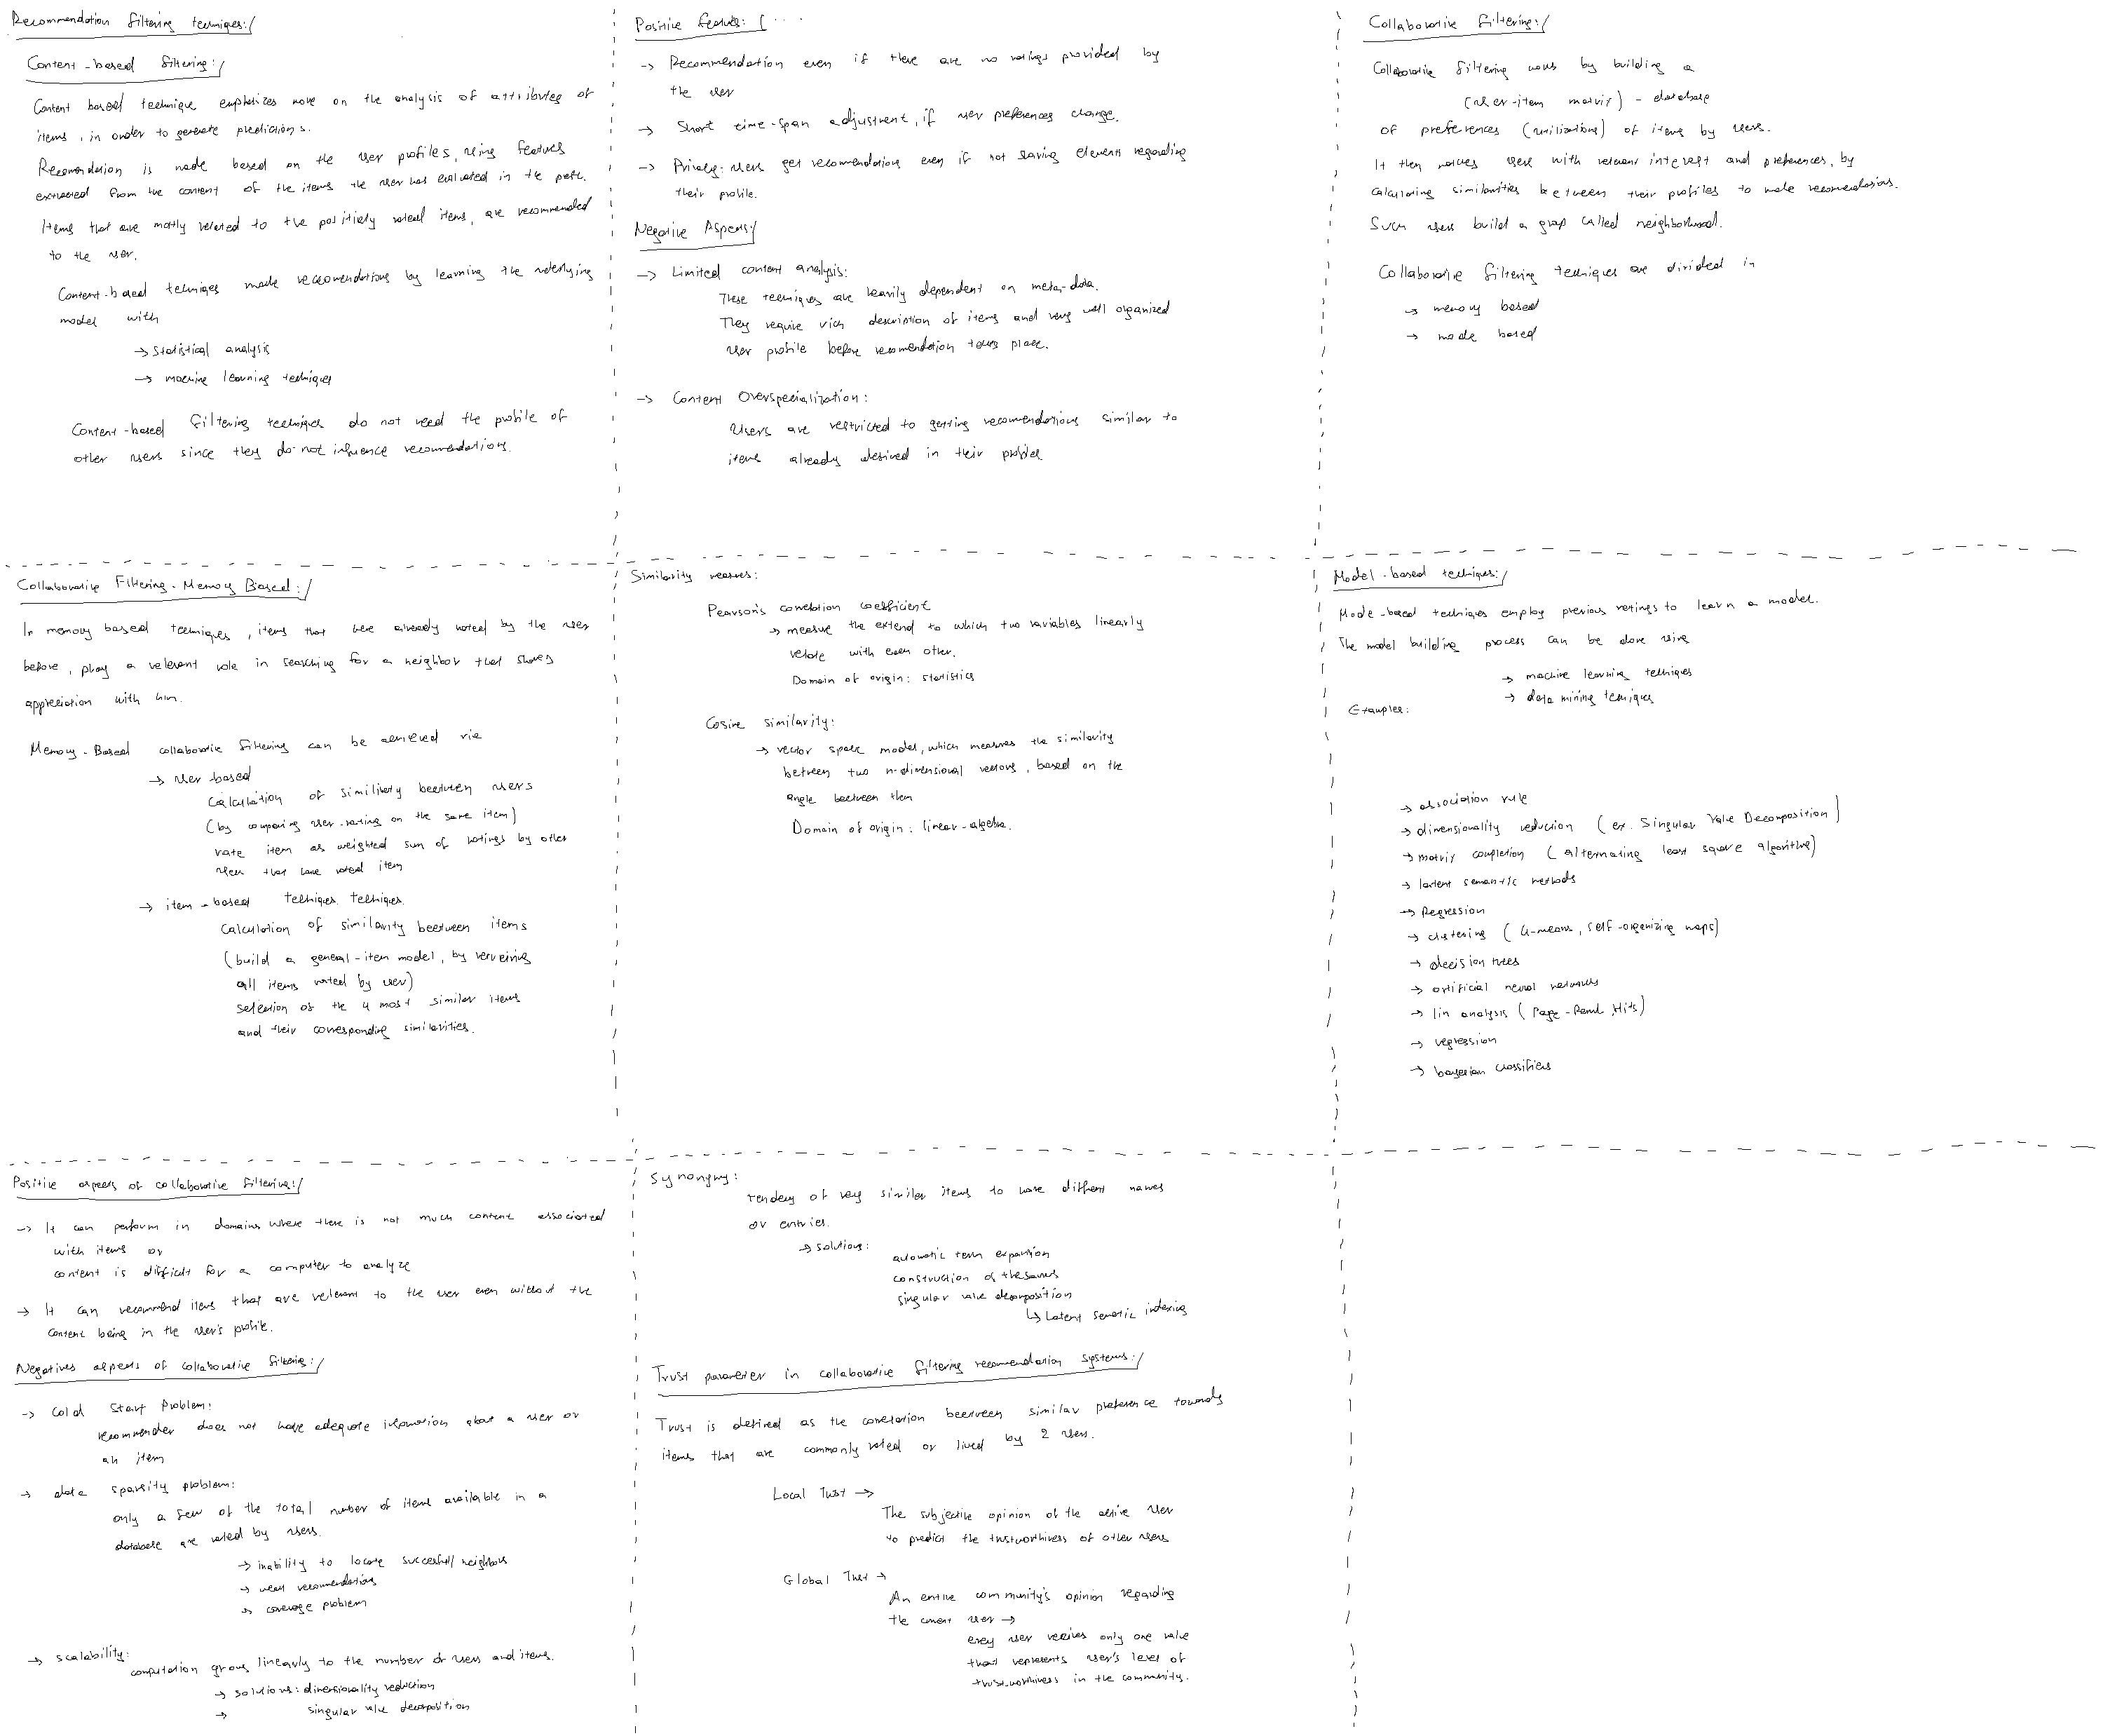 Recommendation filtering techniques:/
Content-based filtering:/
Content based technique emphatizes more on the analysis of attributes of
items, in order to generate predictions.
Recomendation is made based on the user profiles, using features
extracted from the content of the items the user has evaluated in the past.
Items that are mostly related to the positively rated items, are recommended
to the user.
Content-based techniques made reccomendations by learning the underlying
model with
→ statistical analysis
→ machine learning techniques
Content-based filtering techniques do not need the profile of
other users since they do not influence recomendations.
Positive features: (....
→ Recommendation even if there are no ratings provided by
the user
→ Short time-span adjustment, if user preferences change.
→ Privacy: users get recomendations even if not sharing elements regarding
their profile.
Negative Aspects:/
→ Limited content analysis:
These techniques are heavily dependent on meta-data.
They require rich description of items and very well organized
user profile before recomendation takes place.
→ Content Overspecialization:
Users are restricted to getting recomendations similar to
items already defined in their profiles
Collaborative filtering:/
Collaborative filtering works by building a
(user-item matrix) - database
of preferences (utilizations) of items by users.
It then matches users with relevant interest and preferences, by
calculating similarities between their profiles to make recomendations.
Such users build a group called neighborhood.
Collaborative filtering techniques are divided in
→ memory based
→ mode based
Collaborative Filtering - Memory Based:/
In memory based techniques, items that were already rated by the user
before, play a relevant role in searching for a neighbor that shares
appreciation with him.
Memory-Based collaborative filtering can be achieved via
→ user based
Calculation of similarity beetween users
(by comparing user-rating on the same item)
rate item as weighted sum of ratings by other
users that have rated item
→ item-based techniques techniques
Calculation of similarity beetween items
(build a general-item model, by retrieving
all items rated by user)
selection of the 4 most similar items
and their corresponding similarities.
Similarity measures:
Pearson's correlation coefficient
→ measure the extend to which two variables linearly
relate with each other.
Domain of origin: statistics
Cosine similarity:
→ vector space model, which measures the similarity
between two n-dimensional vectors, based on the
angle beetween them
Domain of origin: linear-algebra.
Model-based techniques:/
Mode-based techniques employ previous ratings to learn a model.
The model building process can be done using
→ machine learning techniques
→ data mining techniques
Examples:
→ association rule
→ dimensionality reduction (ex. Singular Value Decomposition)
→ matrix completion (alternating least square algorithm)
→ latent semantic methods
→ Regression
→ clustering (k-means, self-organizing maps)
→ decision trees
→ artificial neural networks
→ lin analysis (Page-Rank, Hits)
→ regression
→ bayesian classifiers
Positive aspects of collaborative filtering:/
→ It can perform in domains where there is not much content associated
with items or
content is difficult for a computer to analyze
→ It can recommend items that are relevant to the user even without the
content being in the user's profile.
Negatives aspects of collaborative filtering:/
→ Cold Start Problem:
recommender does not have adequate information about a user or
an item
→ data sparsity problem:
only a few of the total number of items available in a
database are rated by users.
→ inability to locate succesfull neighbors
→ weak recomendations
→ coverage problem
→ scalability:
computation grows linearly to the number of users and items.
→ solutions: dimensionality reduction
→ singular value decomposition
Synonymy:
Tendency of very similar items to have different names
or entries.
→ solutions:
automatic term expansion
construction of thesaurus
singular value decomposition
↳ Latent semantic indexing
Trust parameter in collaborative filtering recomendation systems:/
Trust is defined as the correlation beetween similar preference towards
items that are commonly rated or liked by 2 users.
Local Trust →
The subjective opinion of the active user
to predict the trustworthiness of other users
Global Trust →
An entire community's opinion regarding
the current user →
every user recives only one value
that represents user's level of
trustworthiness in the community.